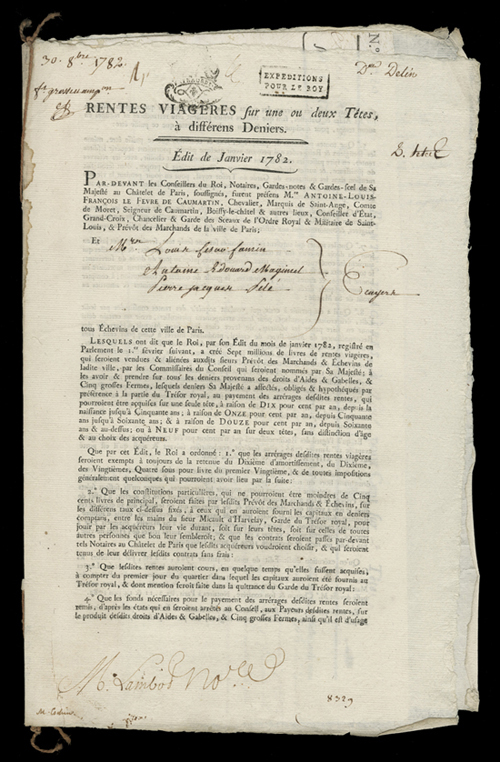 30. 8bre 1782.
EXPÉDITIONS
POUR LE ROY
RENTES VIAGÈRES sur une ou deux Têtes,
à différens Deniers.
Édit de Janvier 1782.
PAR-DEVANT les Conseillers du Roi, Notaires, Gardes-notes & Gardes-scel de Sa
Majesté au Châtelet de Paris, soussignés, furent présens M.re ANTOINE-LOUIS-
FRANÇOIS LE FEVRE DE CAUMARTIN, Chevalier, Marquis de Saint-Ange, Comte
de Moret, Seigneur de Caumartin, Boissy-le-châtel & autres lieux, Conseiller d'État,
Grand-Croix, Chancelier & Garde des Sceaux de l'Ordre Royal & Militaire de Saint-
Louis, & Prévôt des Marchands de la ville de Paris;
Et Mrs. Louis
Antoine Edouard Maginel
Pierre Jacques
Ecuyers
tous Échevins de cette ville de Paris.
LESQUELS ont dit que le Roi, par son Édit du mois de janvier 1782, registré en
Parlement le 1.er février suivant, a créé Sept millions de livres de rentes viagères,
qui seroient vendues & aliénées auxdits sieurs Prévôt des Marchands & Échevins de
ladite ville, par les Commissaires du Conseil qui seroient nommés par Sa Majesté; à
les avoir & prendre sur tous les deniers provenans des droits d'Aides & Gabelles, &
Cinq grosses Fermes, lesquels deniers Sa Majesté a affectés, obligés & hypothéqués par
préférence à la partie du Trésor royal, au payement des arrérages desdites rentes, qui
pourroient être acquises sur une seule tête, à raison de DIX pour cent par an, depuis la
naissance jusqu'à Cinquante ans; à raison de ONZE pour cent par an, depuis Cinquante
ans jusqu'à Soixante ans; & à raison de DOUZE pour cent par an, depuis Soixante
ans & au-dessus; ou à NEUF pour cent par an sur deux têtes, sans distinction d'âge
& au choix des acquéreurs.
Que par cet Édit, le Roi a ordonné: 1.° que les arrérages desdites rentes viagères
seroient exempts à toujours de la retenue du Dixième d'amortissement, du Dixième,
des Vingtièmes, Quatre sous pour livre du premier Vingtième, & de toutes impositions
généralement quelconques qui pourroient avoir lieu par la suite:
2.° Que les constitutions particulières, qui ne pourroient être moindres de Cinq
cents livres de principal, seroient faites par lesdits Prévôt des Marchands & Échevins, sur
les différens taux ci-dessus fixés, à ceux qui en auroient fourni les capitaux en deniers
comptans, entre les mains du sieur Micault d'Harvelay, Garde du Trésor royal, pour
en jouir par les acquéreurs leur vie durant, soit sur leurs têtes, soit sur celles de toutes
autres personnes que bon leur sembleroit; & que les contrats seroient passés par-devant
tels Notaires au Châtelet de Paris que lesdits acquéreurs voudroient choisir, & qui seroient
tenus de leur délivrer lesdits contrats sans frais:
3.° Que lesdites rentes auroient cours, en quelque temps qu'elles fussent acquises,
à compter du premier jour du quartier dans lequel les capitaux auroient été fournis au
Trésor royal, & dont mention seroit faite dans la quittance du Garde du Trésor royal:
4.° Que les fonds nécessaires pour le payement des arrérages desdites rentes seroient
remis, d'après les états qui en seroient arrêtés au Conseil, aux Payeurs desdites rentes, sur
le produit desdits droits d'Aides & Gabelles, & Cinq grosses Fermes, ainsi qu'il est d'usage
8329